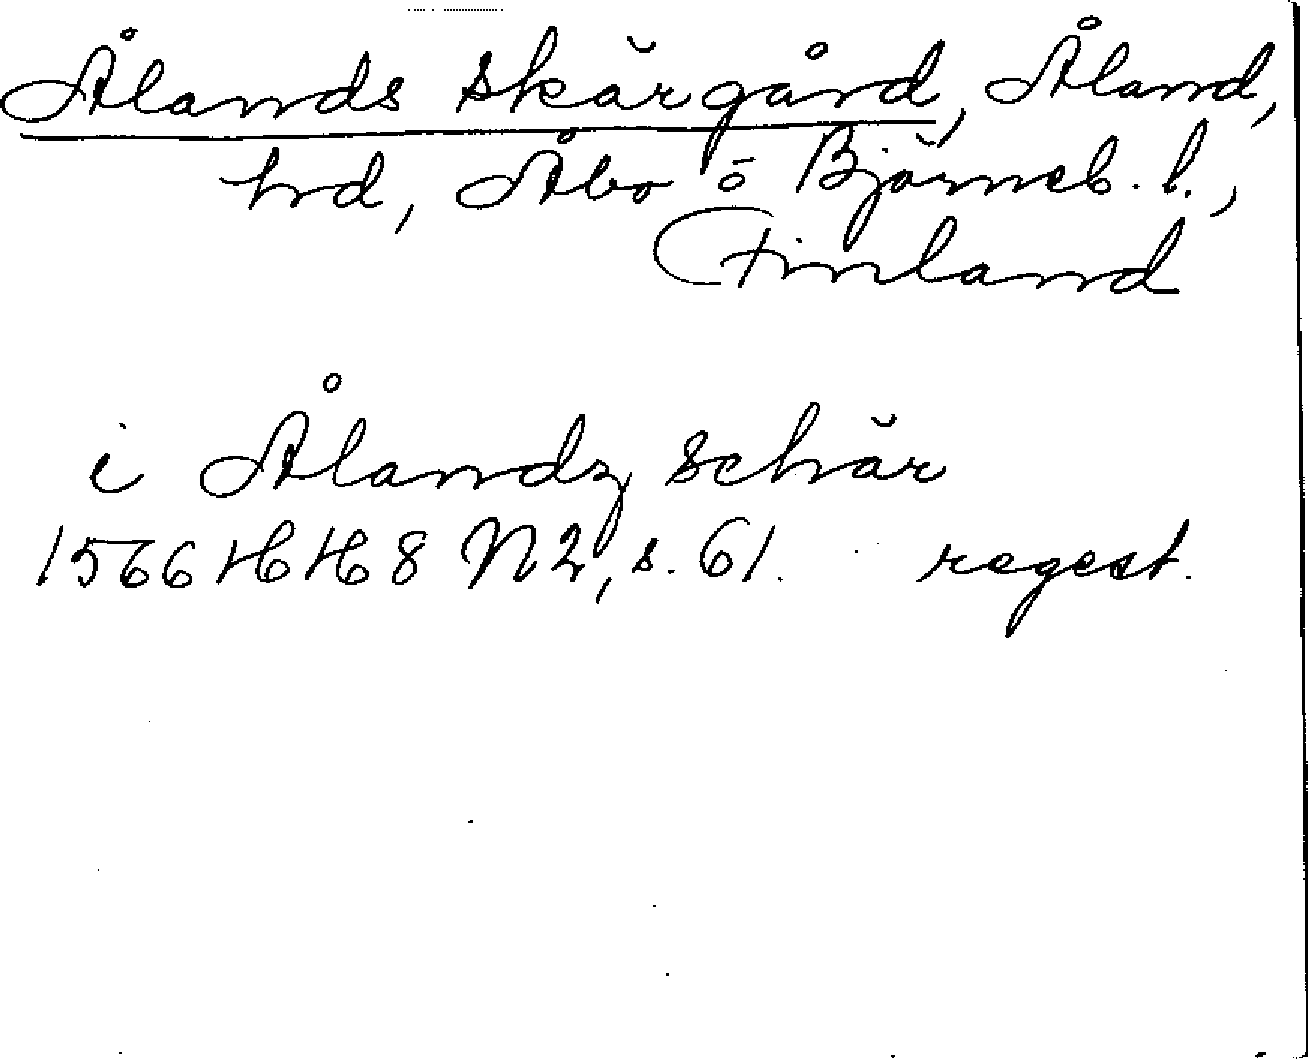 Ålands skärgård, Åland,
hd, Åbo o Björneb. l.,
Finland
i Ålandz schär
1566 HH 8 N2, s. 61. regest.